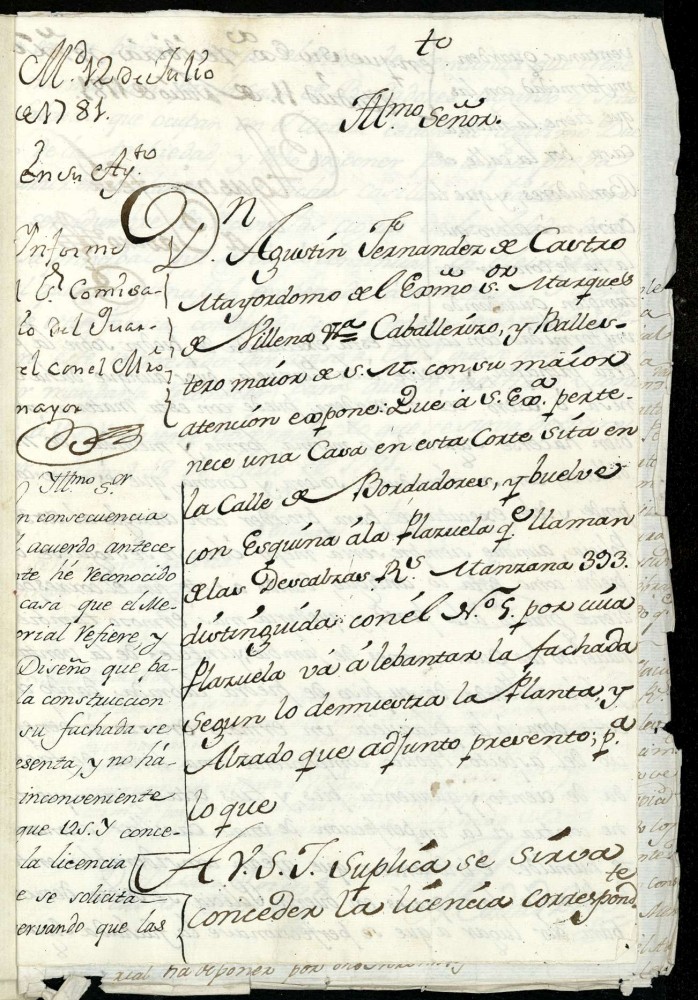 to
M.d 12 de Julio
de 1781.
En su Ay.to
Informe
Comisa-
del Quar-
el con el Mro
mayor
Yllmo Sor
n consecuencia
acuerdo antece-
te hé reconocido
casa que el Me-
orial refiere y
Diseño que ba-
la construccion
su fachada se
esenta, y no há-
inconveniente
que V.S.Y conce-
la licencia
e se solicita
ervando que las
Yllmo Señor.
Dn
Agustín Fernandez de Castro
Mayordomo del Exmo Sor Marques
de Villena Caballerizo, y Balles-
tero maior de S. M. con su maior
atención expone: Que á S. Exa. perte-
nece una Casa en esta Corte sita en
la Calle de Bordadores, y buelve
con Esquina á la Plazuela qe llaman
de las Descalzas Rs. Manzana 393.
distinguida con el No 5. por cuia
Plazuela vá á lebantar la fachada
segun lo demuestra la Planta, y
Alzado que adjunto presento; pa.
lo que
A V. S. I. Suplica se sirva
conceder la licencia correspondte
real ha de poner por